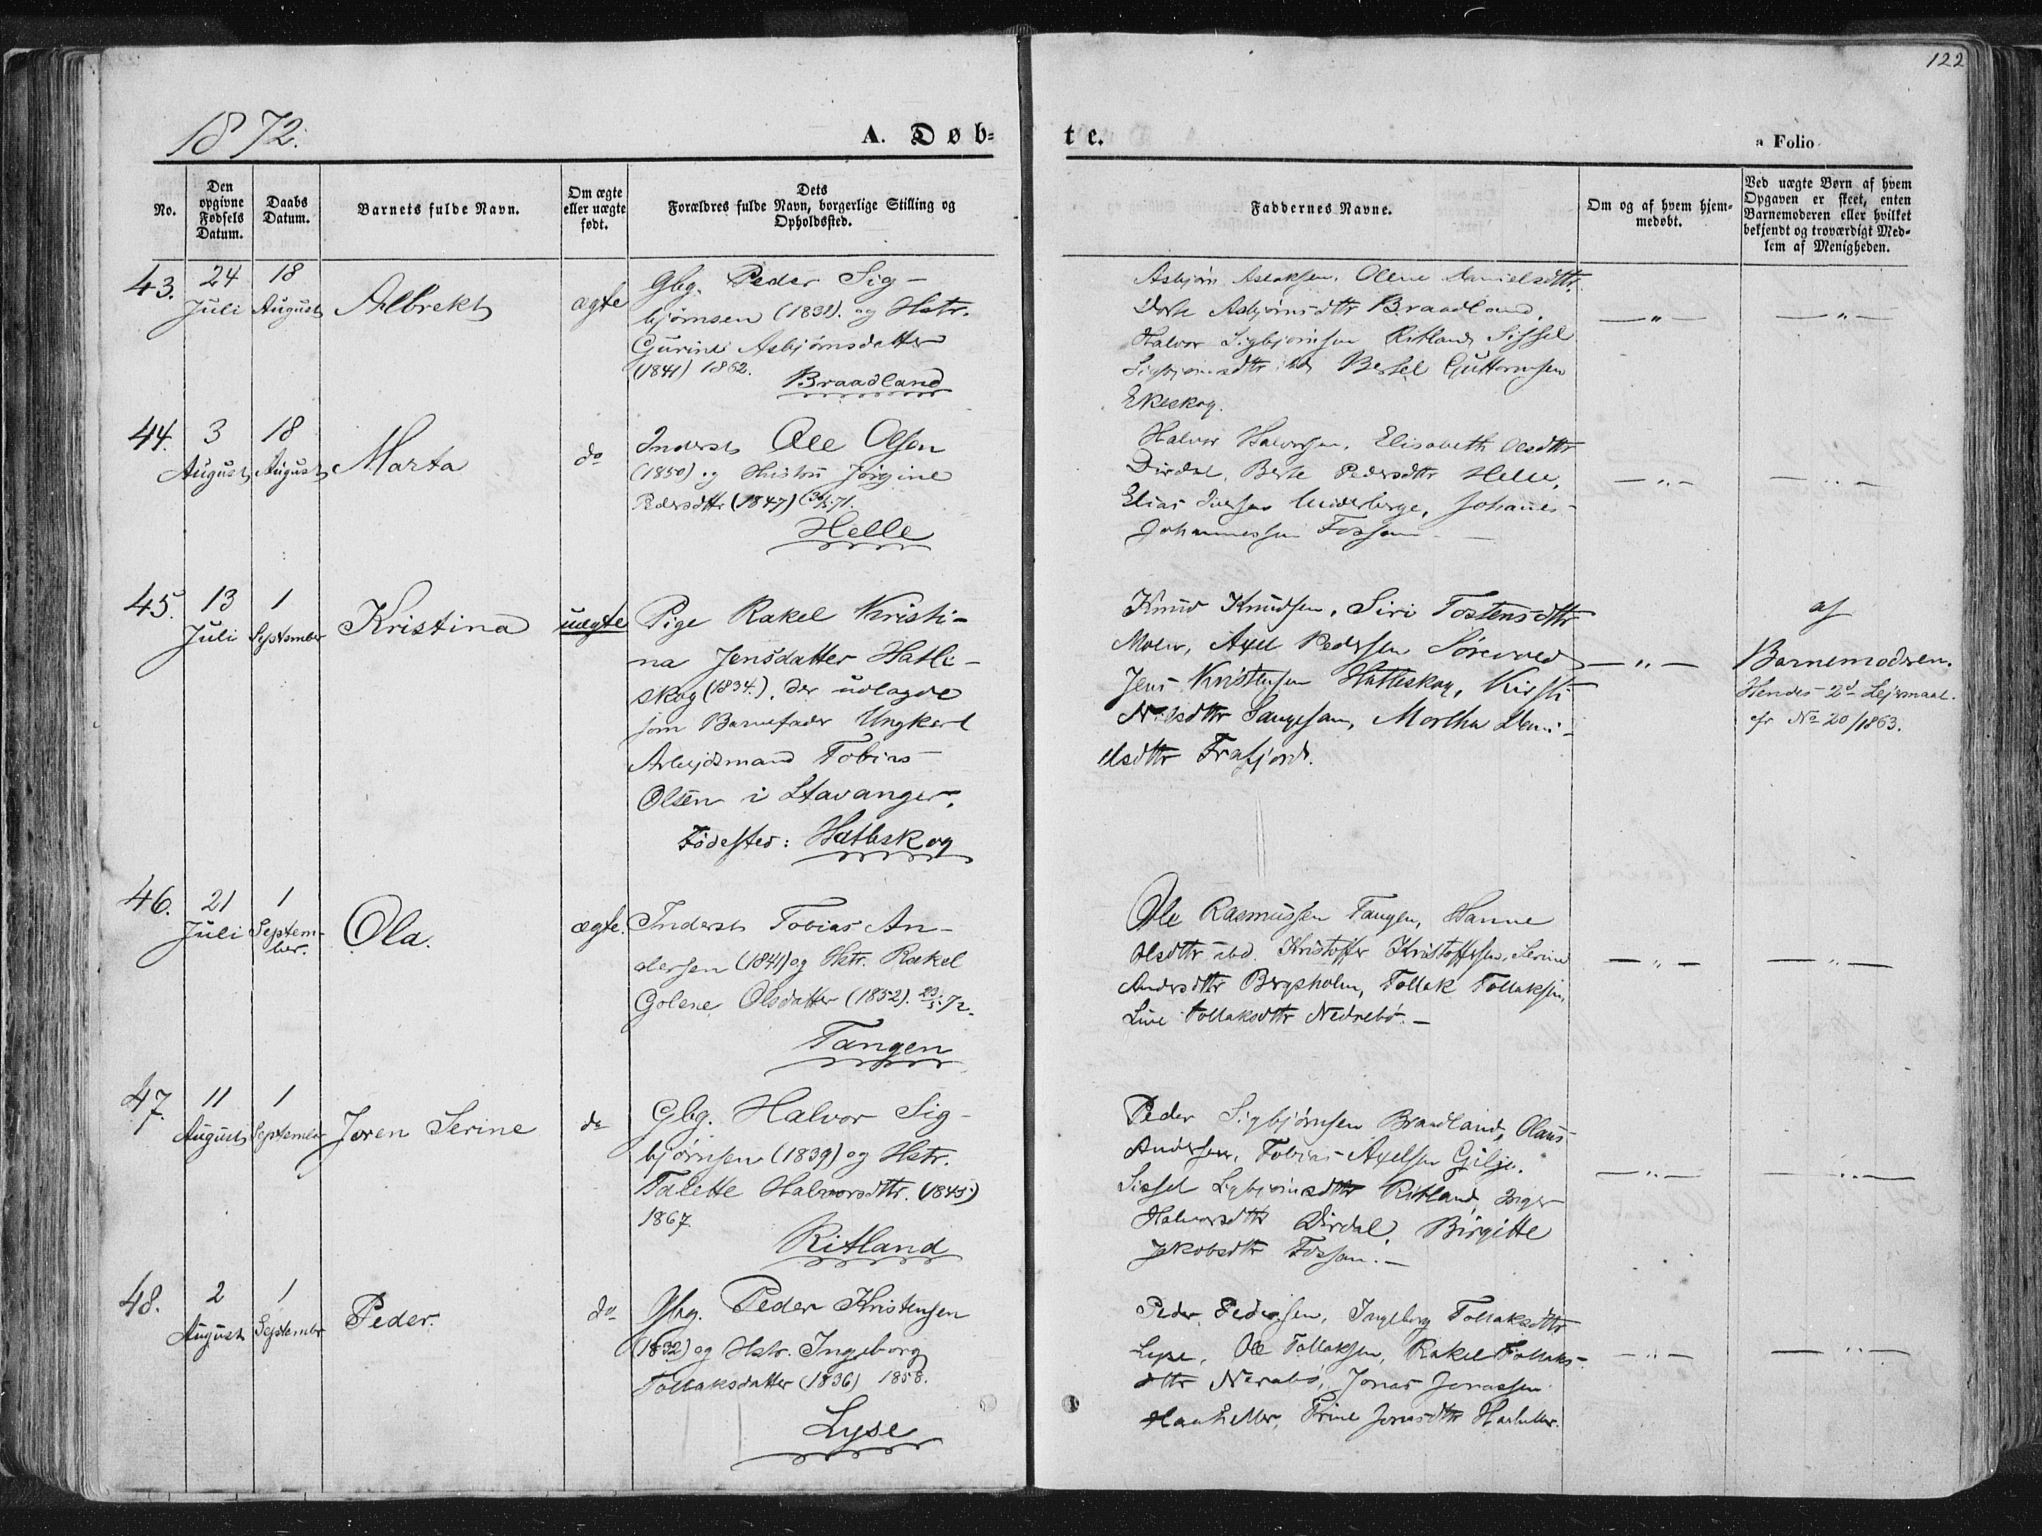 122
1872.
A. Døb-
te.
a Folio
No.
Den
opgivne
Fødsels
Datum.
Daabs
Datum.
Barnets fulde Navn.
Om ægte
eller uægte
født.
Dets
Forældres fulde Navn, borgerlige Stilling og
Opholdssted.
Faddernes Navne.
Om og af hvem hjem-
medøbt.
Ved uægte Børn af hvem
Opgaven er skeet, enten
Barnemoderen eller hvilket
bekjendt og troværdigt Med-
lem af Menigheden.
43.
24
Juli
18
August
Albrekt
ægte
Gbg. Peder Sig-
bjørnsen (1832). og Hstr.
Gurine Asbjørnsdatter
(1841) 1862.
Braadland
Asbjørn Aslaksen, Olene Danielsdttr.
Dorte Asbjørnsdttr Braadland,
Halvor Sigbjørnsen Ritland, Sissel
Sigbjørnsdttr ibd Bertel Guttormsen
Ekeskog.
— " —
— " —
44.
3
August
18
August
Marta
do
Inderst Ole Olsen
(1850) og Hustru Jørgine
Pedersdttr (1847) 71.
Helle
Halvor Halvorsen, Elisabeth Olsdttr
Dirdal, Berte Pedersdttr Helle,
Elias Iversen Underberge, Johannes
Johannessen Fossan —
— " —
— " —
45.
13
Juli
1
September
Kristina
uægte
Pige Rakel Kristi-
na Jensdatter Hatle-
skog (1834.). Der udlagde
som Barnefader Ungkarl
Arbejdsmand Tobias
Olsen i Stavanger.
Fødested: Hatleskog
Knud Knudsen, Siri Tostensdttr
Molew, Axel Pedersen
Jens Kristensen Hatleskog, Kirsti
Nilsdttr Tangesan, Martha Dani-
elsdttr Frafjord.
— " —
af
Barnemoderen.
Hendes 2d Lejermaal.
cfr No 20/1863.
46.
21
Juli
1
Septem-
ber.
Ola.
ægte.
Inderst Tobias An-
dersen (1841) og Hstr. Rakel
Golene Olsdatter (1852). 72.
Tangen
Ole Rasmussen Tangen, Hanne
Olsdttr ibd. Kristoffer Kristoffersen, Serine
Andersdttr Bergsholm, Tollak Tollaksen,
Live Tollaksdttr Nedrebø. —
— " —
— " —
47.
11
August
1
September
Joren Serine
do
Gbg. Halvor Sig-
bjørnsen (1839) og Hstr.
Talette Halvorsdttr. (1845)
1867
Ritland
Peder Sigbjørnsen Braadland, Olaus
Andersen, Tobias Axelsen Gilje.
Sissel Sigbjørnsdttr Ritland, Inger
Halvorsdttr Dirdal, Birgitte
Jakobsdttr Fossan. —
— " —
— " —
48.
2
August
1
September
Peder.
do
Gbg. Peder Kristensen
(1832) og Hstr. Ingeborg
Tollaksdatter (1836) 1858.
Lyse
Peder Pedersen, Ingeborg Tollaksdttr
Lyse, Ole Tollaksen, Rakel Tollaks-
dttr Nerabø, Jonas Jonassen
Haaheller, Trine Jonasdttr Haaheller.
— " —
— " —